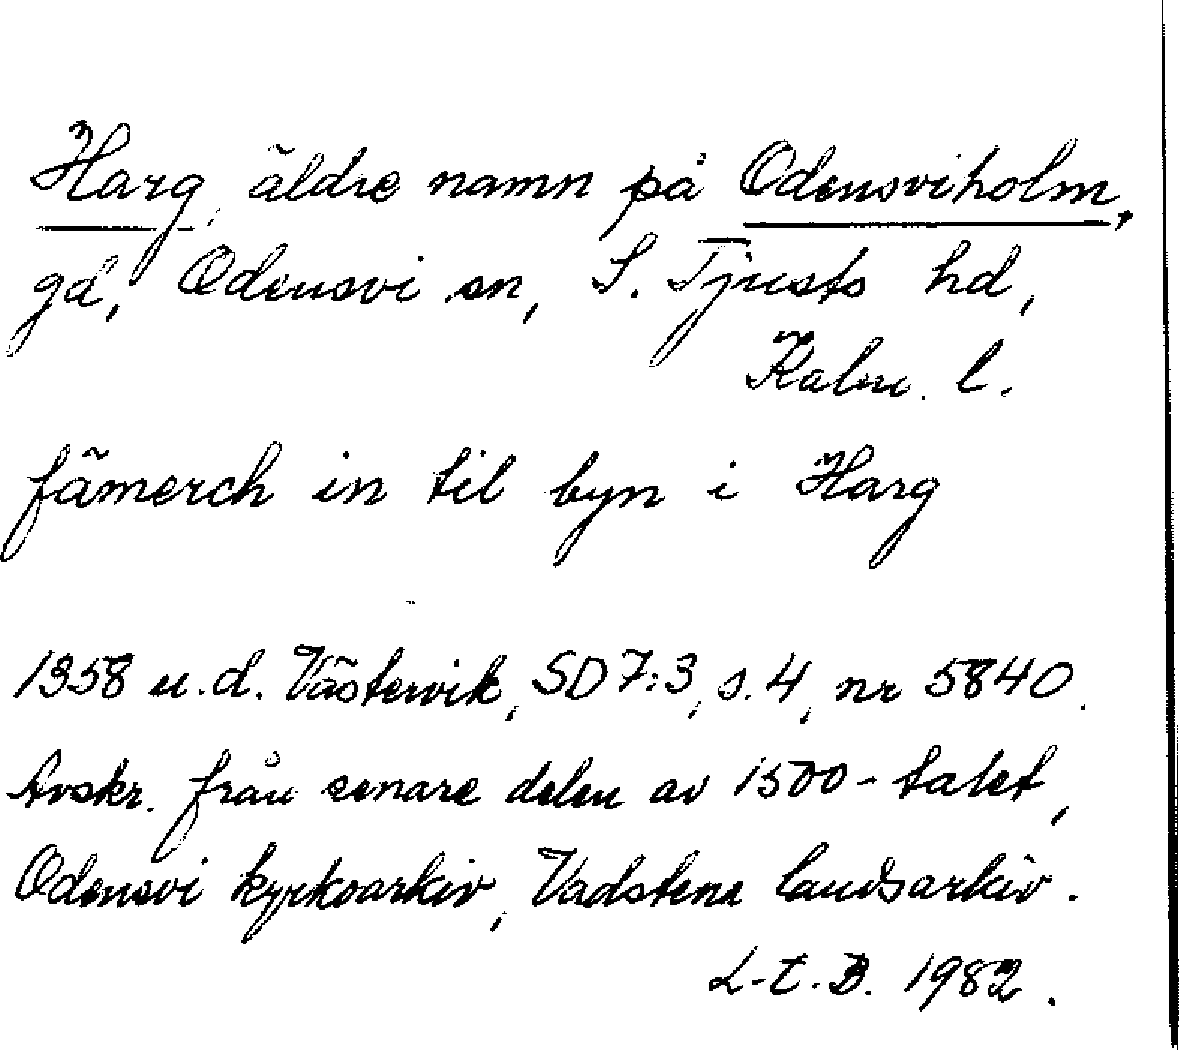 Harg, äldre namn på Odensviholm,
gd, Odensvi sn, S. Tjusts hd,
Kalm. l.
fämerch in til byn i Harg
1358 u.d. Västervik, SD 7:3, s. 4, nr 5840.
Avskr. från senare delen av 1500-talet,
Odensvi kyrkoarkiv, Vadstena landsarkiv.
L-E.B. 1982.